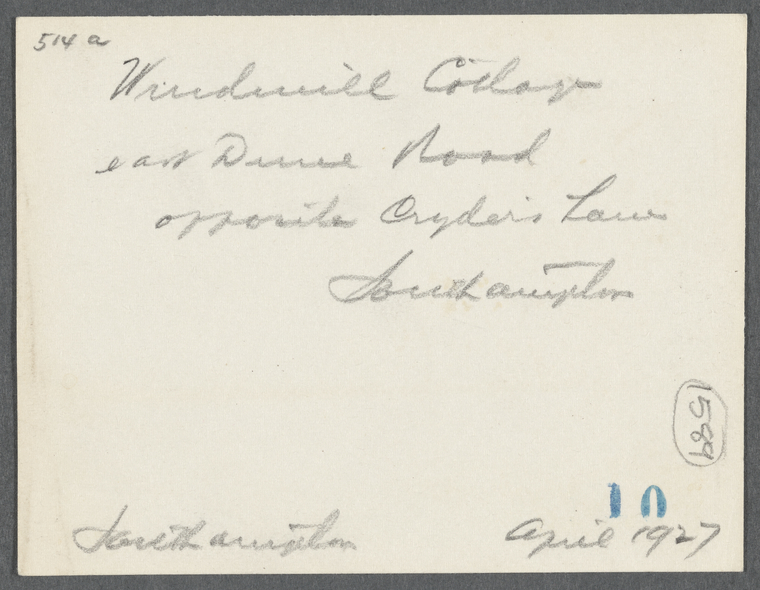 514 a
Windmill Cottage
east Dune Road
opposite Cryder's Lane
Southampton
1589
10
Southampton April 1927